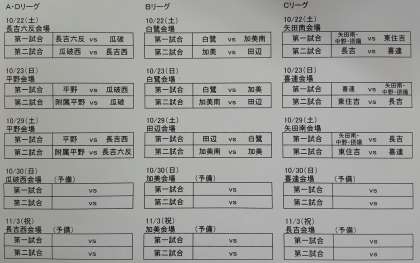 A・Dリーグ
10/22(土)
長吉六反会場
第一試合 長吉六反 vs 瓜破
第二試合 瓜破西 vs 長吉西
10/23(日)
平野会場
第一試合 平野 vs 瓜破西
第二試合 附属平野 vs 瓜破
10/29(土)
平野会場
第一試合 平野 vs 長吉西
第二試合 附属平野 vs 長吉六反
10/30(日)
瓜破西会場 (予備)
第一試合 vs
第二試合 vs
11/3(祝)
長吉西会場 (予備)
第一試合 vs
第二試合 vs
Bリーグ
10/22(土)
白鷺会場
第一試合 白鷺 vs 加美南
第二試合 加美 vs 田辺
10/23(日)
白鷺会場
第一試合 白鷺 vs 加美
第二試合 加美南 vs 田辺
10/29(土)
田辺会場
第一試合 田辺 vs 白鷺
第二試合 加美南 vs 加美
10/30(日)
加美南会場 (予備)
第一試合 vs
第二試合 vs
11/3(祝)
加美会場 (予備)
第一試合 vs
第二試合 vs
Cリーグ
10/22(土)
矢田南会場
第一試合 矢田南・中野・ vs 東住吉
第二試合 長吉 vs 喜連
10/23(日)
喜連会場
第一試合 喜連 vs 矢田南・中野・
第二試合 東住吉 vs 長吉
10/29(土)
矢田南会場
第一試合 矢田南・中野・ vs 長吉
第二試合 東住吉 vs 喜連
10/30(日)
喜連会場 (予備)
第一試合 vs
第二試合 vs
11/3(祝)
長吉会場 (予備)
第一試合 vs
第二試合 vs